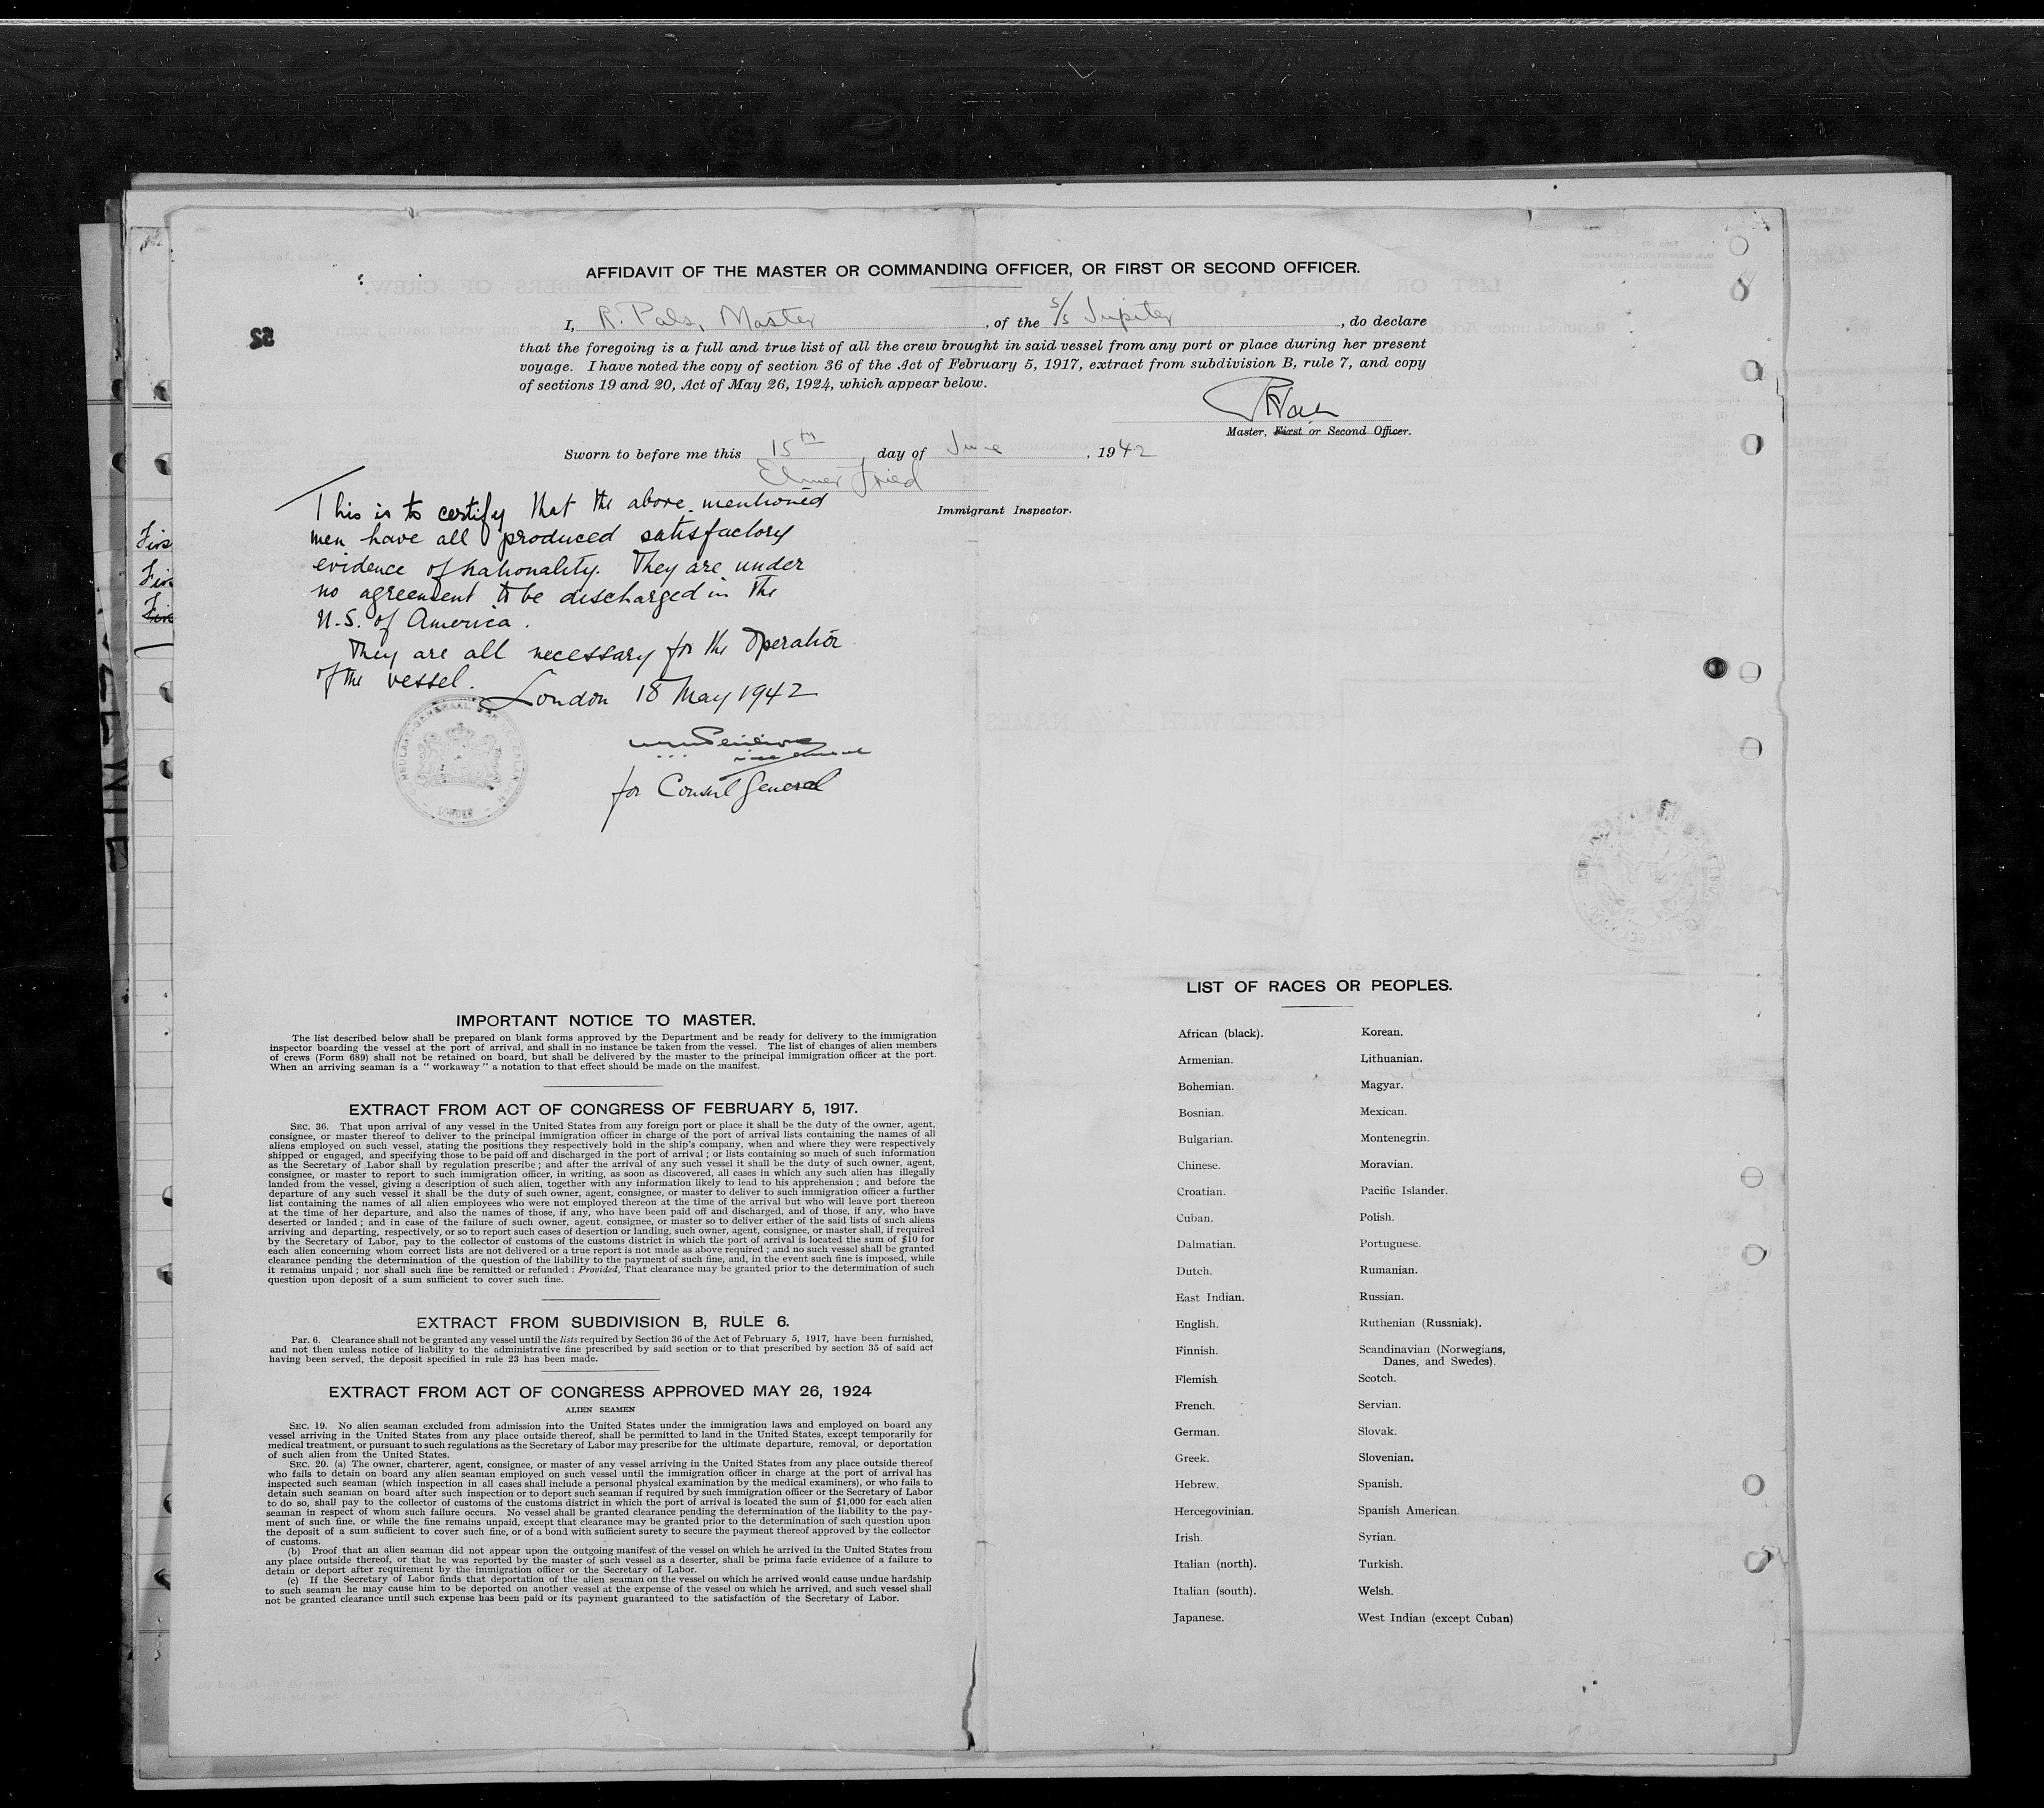 AFFIDAVIT OF THE MASTER OR COMMANDING OFFICER, OR FIRST OR SECOND OFFICER.
I, R. Pals, Master, of the S/S Jupiter, do declare
that the foregoing is a full and true list of all the crew brought in said vessel from any port or place during her present
voyage. I have noted the copy of section 36 of the Act of February 5, 1917, extract from subdivision B, rule 7, and copy
of sections 19 and 20, Act of May 26, 1924, which appear below.
52
Master, First or Second Officer.
Sworn to before me this 15th day of June, 1942
Elmer Fried
Immigrant Inspector.
This is to certify that the above mentioned
men have all produced satisfactory
evidence of nationality. They are under
no agreement to be discharged in the
U.S. of America.
They are all necessary for the operation
of the vessel.
London 18 May 1942
for Consul General
IMPORTANT NOTICE TO MASTER.
The list described below shall be prepared on blank forms approved by the Department and be ready for delivery to the immigration
inspector boarding the vessel at the port of arrival, and shall in no instance be taken from the vessel. The list of changes of alien members
of crews (Form 689) shall not be retained on board, but shall be delivered by the master to the principal immigration officer at the port.
When an arriving seaman is a "workaway" a notation to that effect should be made on the manifest.
EXTRACT FROM ACT OF CONGRESS OF FEBRUARY 5, 1917.
SEC. 36. That upon arrival of any vessel in the United States from any foreign port or place it shall be the duty of the owner, agent,
consignee, or master thereof to deliver to the principal immigration officer in charge of the port of arrival lists containing the names of all
aliens employed on such vessel, stating the positions they respectively hold in the ship's company, when and where they were respectively
shipped or engaged, and specifying those to be paid off and discharged in the port of arrival; or lists containing so much of such information
as the Secretary of Labor shall by regulation prescribe; and after the arrival of any such vessel it shall be the duty of such owner, agent,
consignee, or master to report to such immigration officer, in writing, as soon as discovered, all cases in which any such alien has illegally
landed from the vessel, giving a description of such alien, together with any information likely to lead to his apprehension; and before the
departure of any such vessel it shall be the duty of such owner, agent, consignee, or master to deliver to such immigration officer a further
list containing the names of all alien employees who were not employed thereon at the time of the arrival but who will leave port thereon
at the time of her departure, and also the names of those, if any, who have been paid off and discharged, and of those, if any, who have
deserted or landed; and in case of the failure of such owner, agent, consignee, or master so to deliver either of the said lists of such aliens
arriving and departing, respectively, or so to report such cases of desertion or landing, such owner, agent, consignee, or master shall, if required
by the Secretary of Labor, pay to the collector of customs of the customs district in which the port of arrival is located the sum of $10 for
each alien concerning whom correct lists are not delivered or a true report is not made as above required; and no such vessel shall be granted
clearance pending the determination of the question of the liability to the payment of such fine, and, in the event such fine is imposed, while
it remains unpaid; nor shall such fine be remitted or refunded: Provided, That clearance may be granted prior to the determination of such
question upon deposit of a sum sufficient to cover such fine.
EXTRACT FROM SUBDIVISION B, RULE 6.
PAR. 6. Clearance shall not be granted any vessel until the lists required by Section 36 of the Act of February 5, 1917, have been furnished,
and not then unless notice of liability to the administrative fine prescribed by said section or to that prescribed by section 35 of said act
having been served, the deposit specified in rule 23 has been made.
EXTRACT FROM ACT OF CONGRESS APPROVED MAY 26, 1924
ALIEN SEAMEN
SEC. 19. No alien seaman excluded from admission into the United States under the immigration laws and employed on board any
vessel arriving in the United States from any place outside thereof, shall be permitted to land in the United States, except temporarily for
medical treatment, or pursuant to such regulations as the Secretary of Labor may prescribe for the ultimate departure, removal, or deportation
of such alien from the United States.
SEC. 20. (a) The owner, charterer, agent, consignee, or master of any vessel arriving in the United States from any place outside thereof
who fails to detain on board any alien seaman employed on such vessel until the immigration officer in charge at the port of arrival has
inspected such seaman (which inspection in all cases shall include a personal physical examination by the medical examiners), or who fails to
detain such seaman on board after such inspection or to deport such seaman if required by such immigration officer or the Secretary of Labor
to do so, shall pay to the collector of customs of the customs district in which the port of arrival is located the sum of $1,000 for each alien
seaman in respect of whom such failure occurs. No vessel shall be granted clearance pending the determination of the liability to the pay-
ment of such fine, or while the fine remains unpaid, except that clearance may be granted prior to the determination of such question upon
the deposit of a sum sufficient to cover such fine, or of a bond with sufficient surety to secure the payment thereof approved by the collector
of customs.
(b) Proof that an alien seaman did not appear upon the outgoing manifest of the vessel on which he arrived in the United States from
any place outside thereof, or that he was reported by the master of such vessel as a deserter, shall be prima facie evidence of a failure to
detain or deport after requirement by the immigration officer or the Secretary of Labor.
(c) If the Secretary of Labor finds that deportation of the alien seaman on the vessel on which he arrived would cause undue hardship
to such seaman he may cause him to be deported on another vessel at the expense of the vessel on which he arrived, and such vessel shall
not be granted clearance until such expense has been paid or its payment guaranteed to the satisfaction of the Secretary of Labor.
LIST OF RACES OR PEOPLES.
African (black).
Armenian.
Bohemian.
Bosnian.
Bulgarian.
Chinese.
Croatian.
Cuban.
Dalmatian.
Dutch.
East Indian.
English.
Finnish.
Flemish
French.
German.
Greek.
Hebrew.
Hercegovinian.
Irish.
Italian (north).
Italian (south).
Japanese.
Korean.
Lithuanian.
Magyar.
Mexican.
Montenegrin.
Moravian.
Pacific Islander.
Polish.
Portuguese.
Rumanian.
Russian.
Ruthenian (Russniak).
Scandinavian (Norwegians,
Danes, and Swedes).
Scotch.
Servian.
Slovak.
Slovenian.
Spanish.
Spanish American.
Syrian.
Turkish.
Welsh.
West Indian (except Cuban)